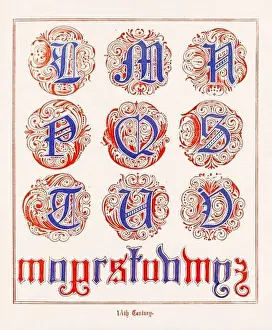 L M N
P Q S
T U V
mopr stuvwyz
14th Century.